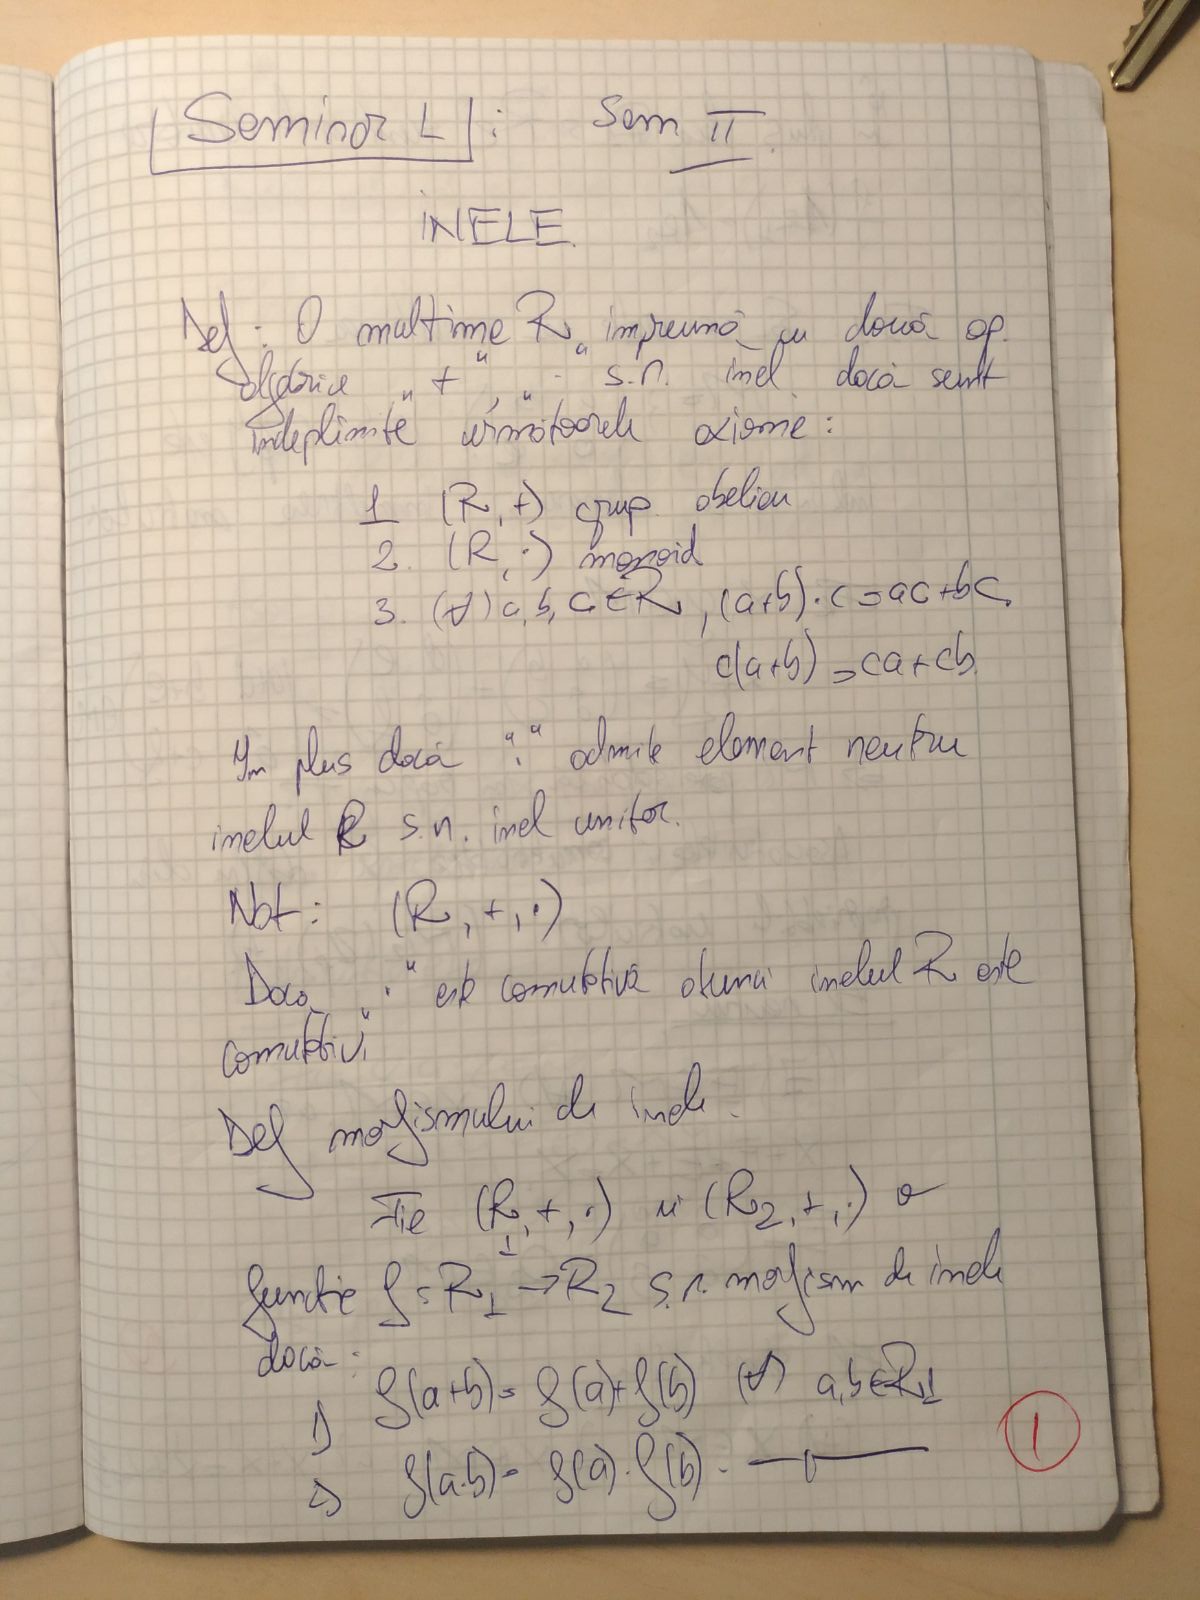 Seminar 1: Sem II.
INELE.
Def: O multime R împreună cu două op.
algebrice „+", „·" s.n. inel dacă sunt
îndeplinite următoarele axiome:
1 (R,+) grup abelian
2. (R,·) monoid
3. (∀) a,b,c ∈ R, (a+b)·c = ac+bc
c(a+b) = ca+cb.
In plus dacă "·" admite element neutru
inelul R s.n. inel unitar.
Not: (R,+,·)
Daca „·" este comutativă atunci inelul R este
comutativ
Def morfismului de inele.
Fie (R1,+,·) și (R2,+,·) o
functie f: R1 → R2 s.n. morfism de inele
dacă:
1) f(a+b) = f(a)+f(b) (∀) a,b ∈ R1
2) f(a·b) = f(a)·f(b). —〃—
1